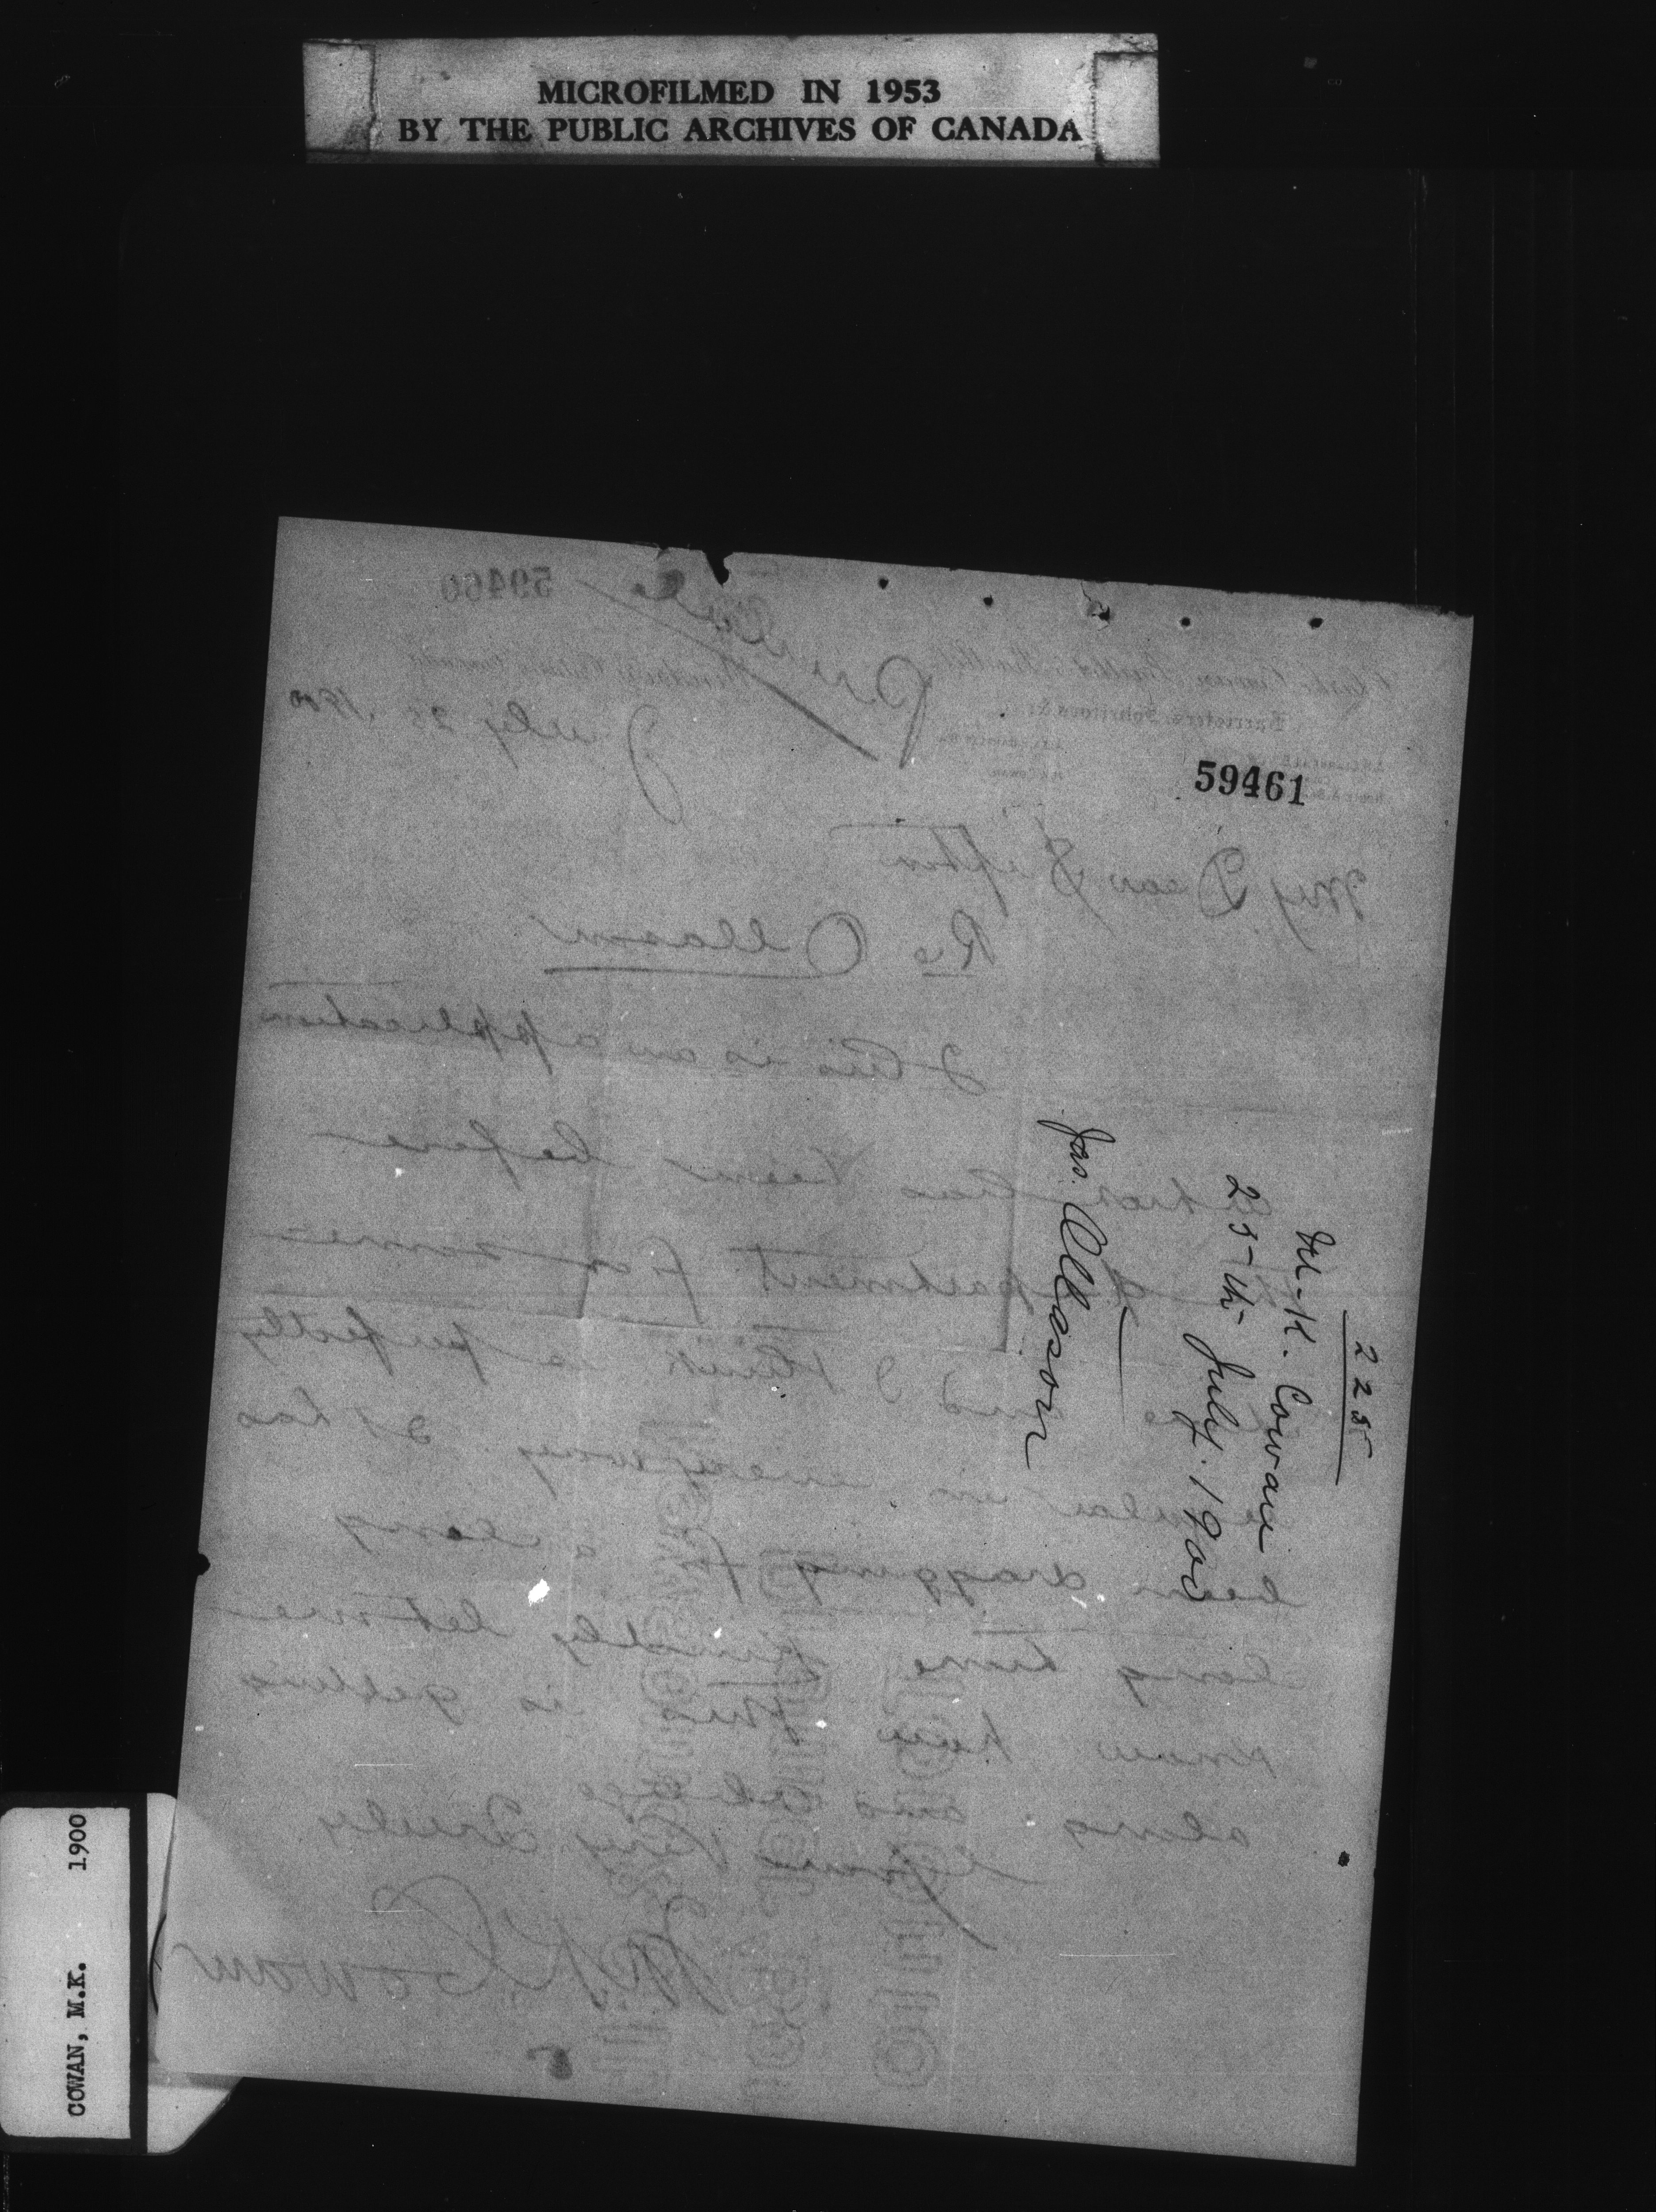 MICROFILMED IN 1953
BY THE PUBLIC ARCHIVES OF CANADA
59461
2285
M. K. Cowan
25th July. 1900
Jas. Ollason
59460
Private
July 25 1900
Barristers, Solicitors &c.
My Dear Sifton
Re Ollason
This is an application
that has been before
the department for some
and I think is perfectly
regular in every way. It has
been dragging for a long
long time. Kindly let me
know how this is getting
along and oblige
Yours Very Truly
M K Cowan
COWAN, M.K. 1900